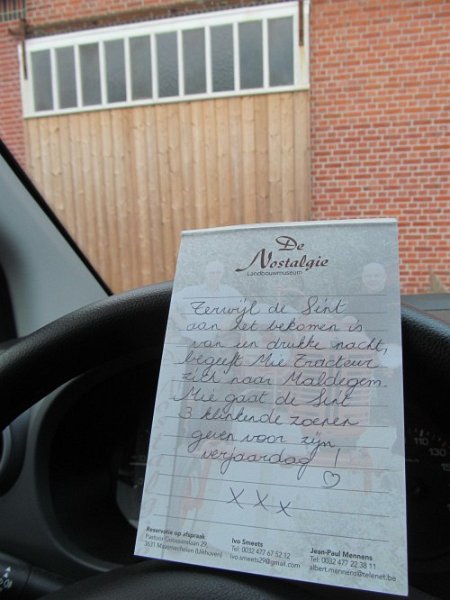 De
Nostalgie
Landbouwmuseum
Terwijl de Sint
aan het bekomen is
van een drukke nacht,
begeeft Mie Tracteur
zich naar Maldegem.
Mie gaat de Sint
3 klinkende zoenen
geven voor zijn
verjaardag!
X X X
Reservatie op afspraak
3631 Maasmechelen (Uikhoven)
Ivo Smeets
Tel: 0032 477 67 52 12
ivo.smeets29@gmail.com
Jean-Paul Mennens
Tel: 0032 477 22 38 11
albert.mennens@telenet.be
110
130
150